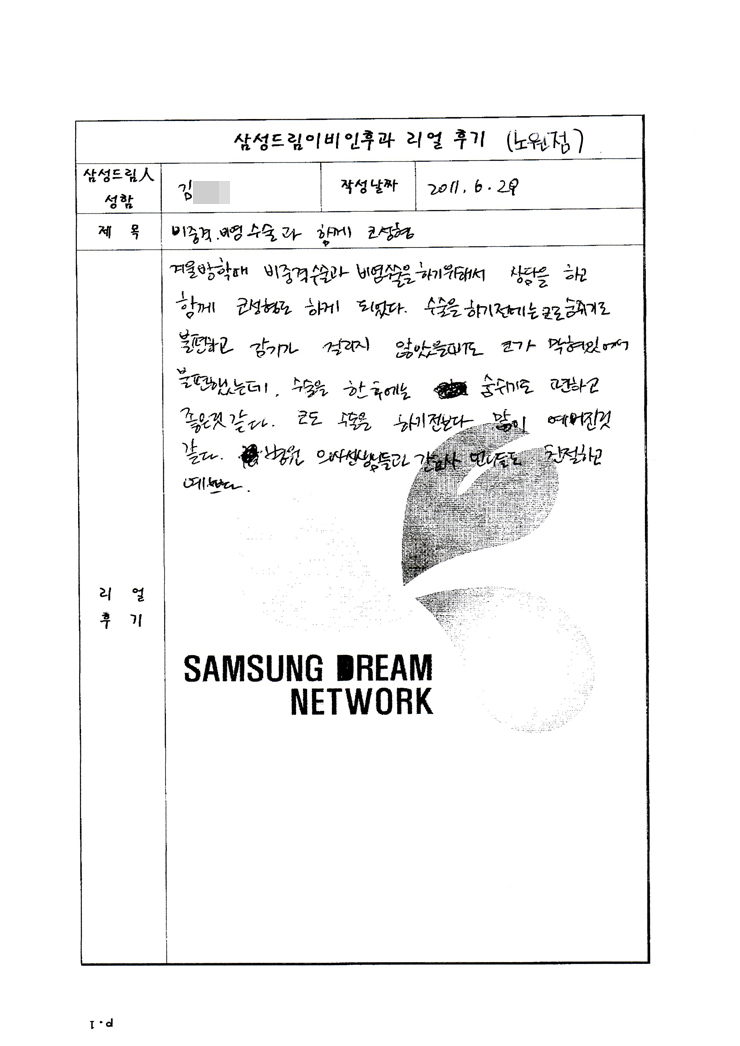 삼성드림이비인후과 리얼 후기 (노원점)
삼성드림人
성함
김
작성날짜
2011. 6. 29
제 목
비중격.비염 수술과 함께 코성형
겨울방학때 비중격수술과 비염수술을 하기위해서 상담을 하고
함께 코성형도 하게 되었다. 수술을 하기전에는 코로 숨쉬기도
불편하고 감기가 걸리지 않았을때도 코가 막혀있어서
불편했는데, 수술을 한 후에는 숨쉬기도 편하고
좋은것 같다. 코도 수술을 하기전보다 많이 예뻐진것
같다. 병원 의사선생님들과 간호사 언니들도 친절하고
예쁘다.
리 얼
후 기
SAMSUNG DREAM
NETWORK
P.1